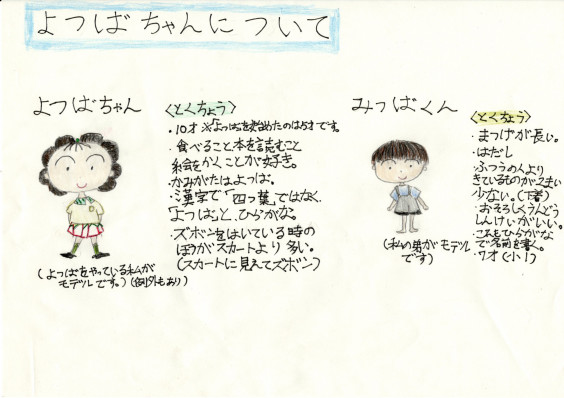 よつばちゃんについて
よつばちゃん
〈とくちょう〉
・10才 ※「よつば」を始めたのは5才です。
・食べること本を読むこと
絵をかくことが好き。
・かみがたはよつば。
・漢字で「四つ葉」ではなく、
「よつば」と、ひらがな。
・ズボンをはいている時の
ほうがスカートより多い。
(スカートに見えてズボン)
(よつばをやっている私が
モデルです。)(例外もあり)
みつばくん
〈とくちょう〉
・まつげが長い。
・はだし
・ふつうの人より
きているものが1まい
少ない。(下着)
・おそろしくうんどう
しんけいがいい。
・これもひらがな
で名前を書く。
・7才(小1)
(私の弟がモデル
です)